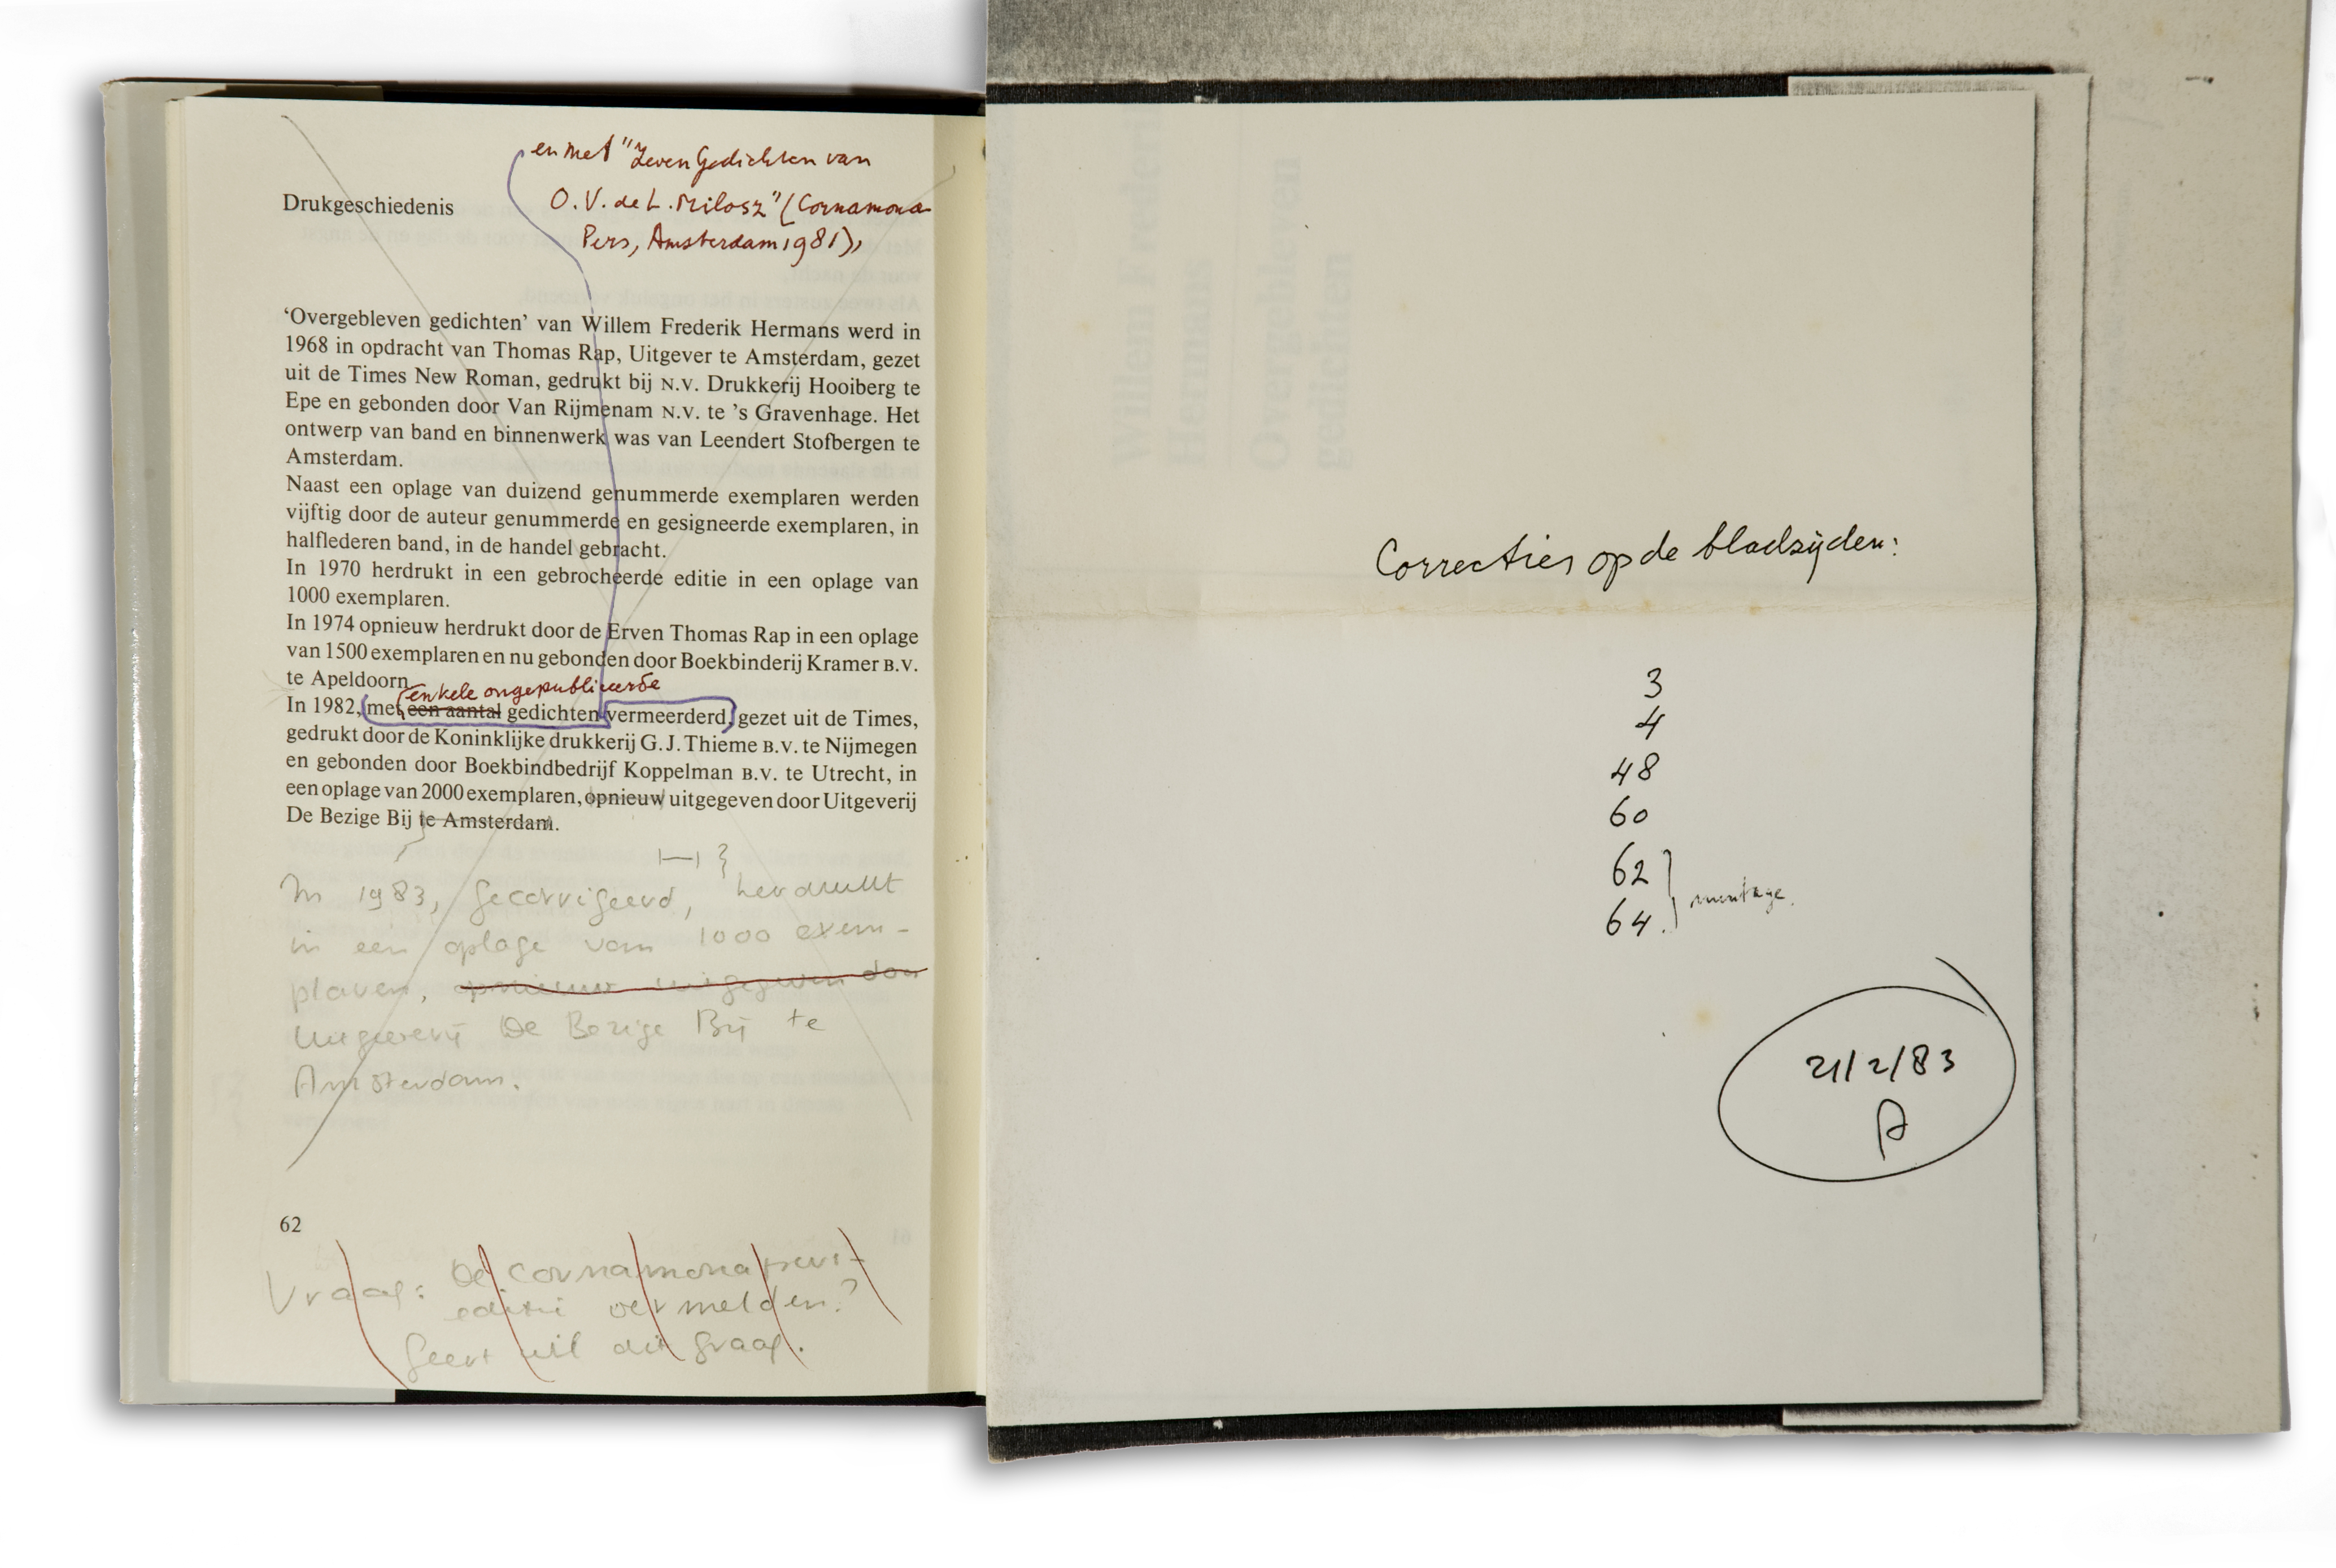 en met "Zeven Gedichten van
O.V. de L. Milosz" (Cornamona
Pers, Amsterdam 1981),
Drukgeschiedenis
‘Overgebleven gedichten’ van Willem Frederik Hermans werd in
1968 in opdracht van Thomas Rap, Uitgever te Amsterdam, gezet
uit de Times New Roman, gedrukt bij N.V. Drukkerij Hooiberg te
Epe en gebonden door Van Rijmenam N.V. te ’s Gravenhage. Het
ontwerp van band en binnenwerk was van Leendert Stofbergen te
Amsterdam.
Naast een oplage van duizend genummerde exemplaren werden
vijftig door de auteur genummerde en gesigneerde exemplaren, in
halflederen band, in de handel gebracht.
In 1970 herdrukt in een gebrocheerde editie in een oplage van
1000 exemplaren.
In 1974 opnieuw herdrukt door de Erven Thomas Rap in een oplage
van 1500 exemplaren en nu gebonden door Boekbinderij Kramer B.V.
te Apeldoorn
enkele ongepubliceerde
In 1982, met een aantal gedichten vermeerderd, gezet uit de Times,
gedrukt door de Koninklijke drukkerij G.J. Thieme B.V. te Nijmegen
en gebonden door Boekbindbedrijf Koppelman B.V. te Utrecht, in
een oplage van 2000 exemplaren, opnieuw uitgegeven door Uitgeverij
De Bezige Bij te Amsterdam.
In 1983, gecorrigeerd, herdrukt
in een oplage van 1000 exem-
plaren, opnieuw uitgegeven door
Uitgeverij De Bezige Bij te
Amsterdam.
62
Vraag: De Cornamona pers-
editie vermelden?
Geert wil dit graag.
Willem Frederik
Hermans
Overgebleven
gedichten
Correcties op de bladzijden:
3
4
48
60
62
64
montage.
21/2/83